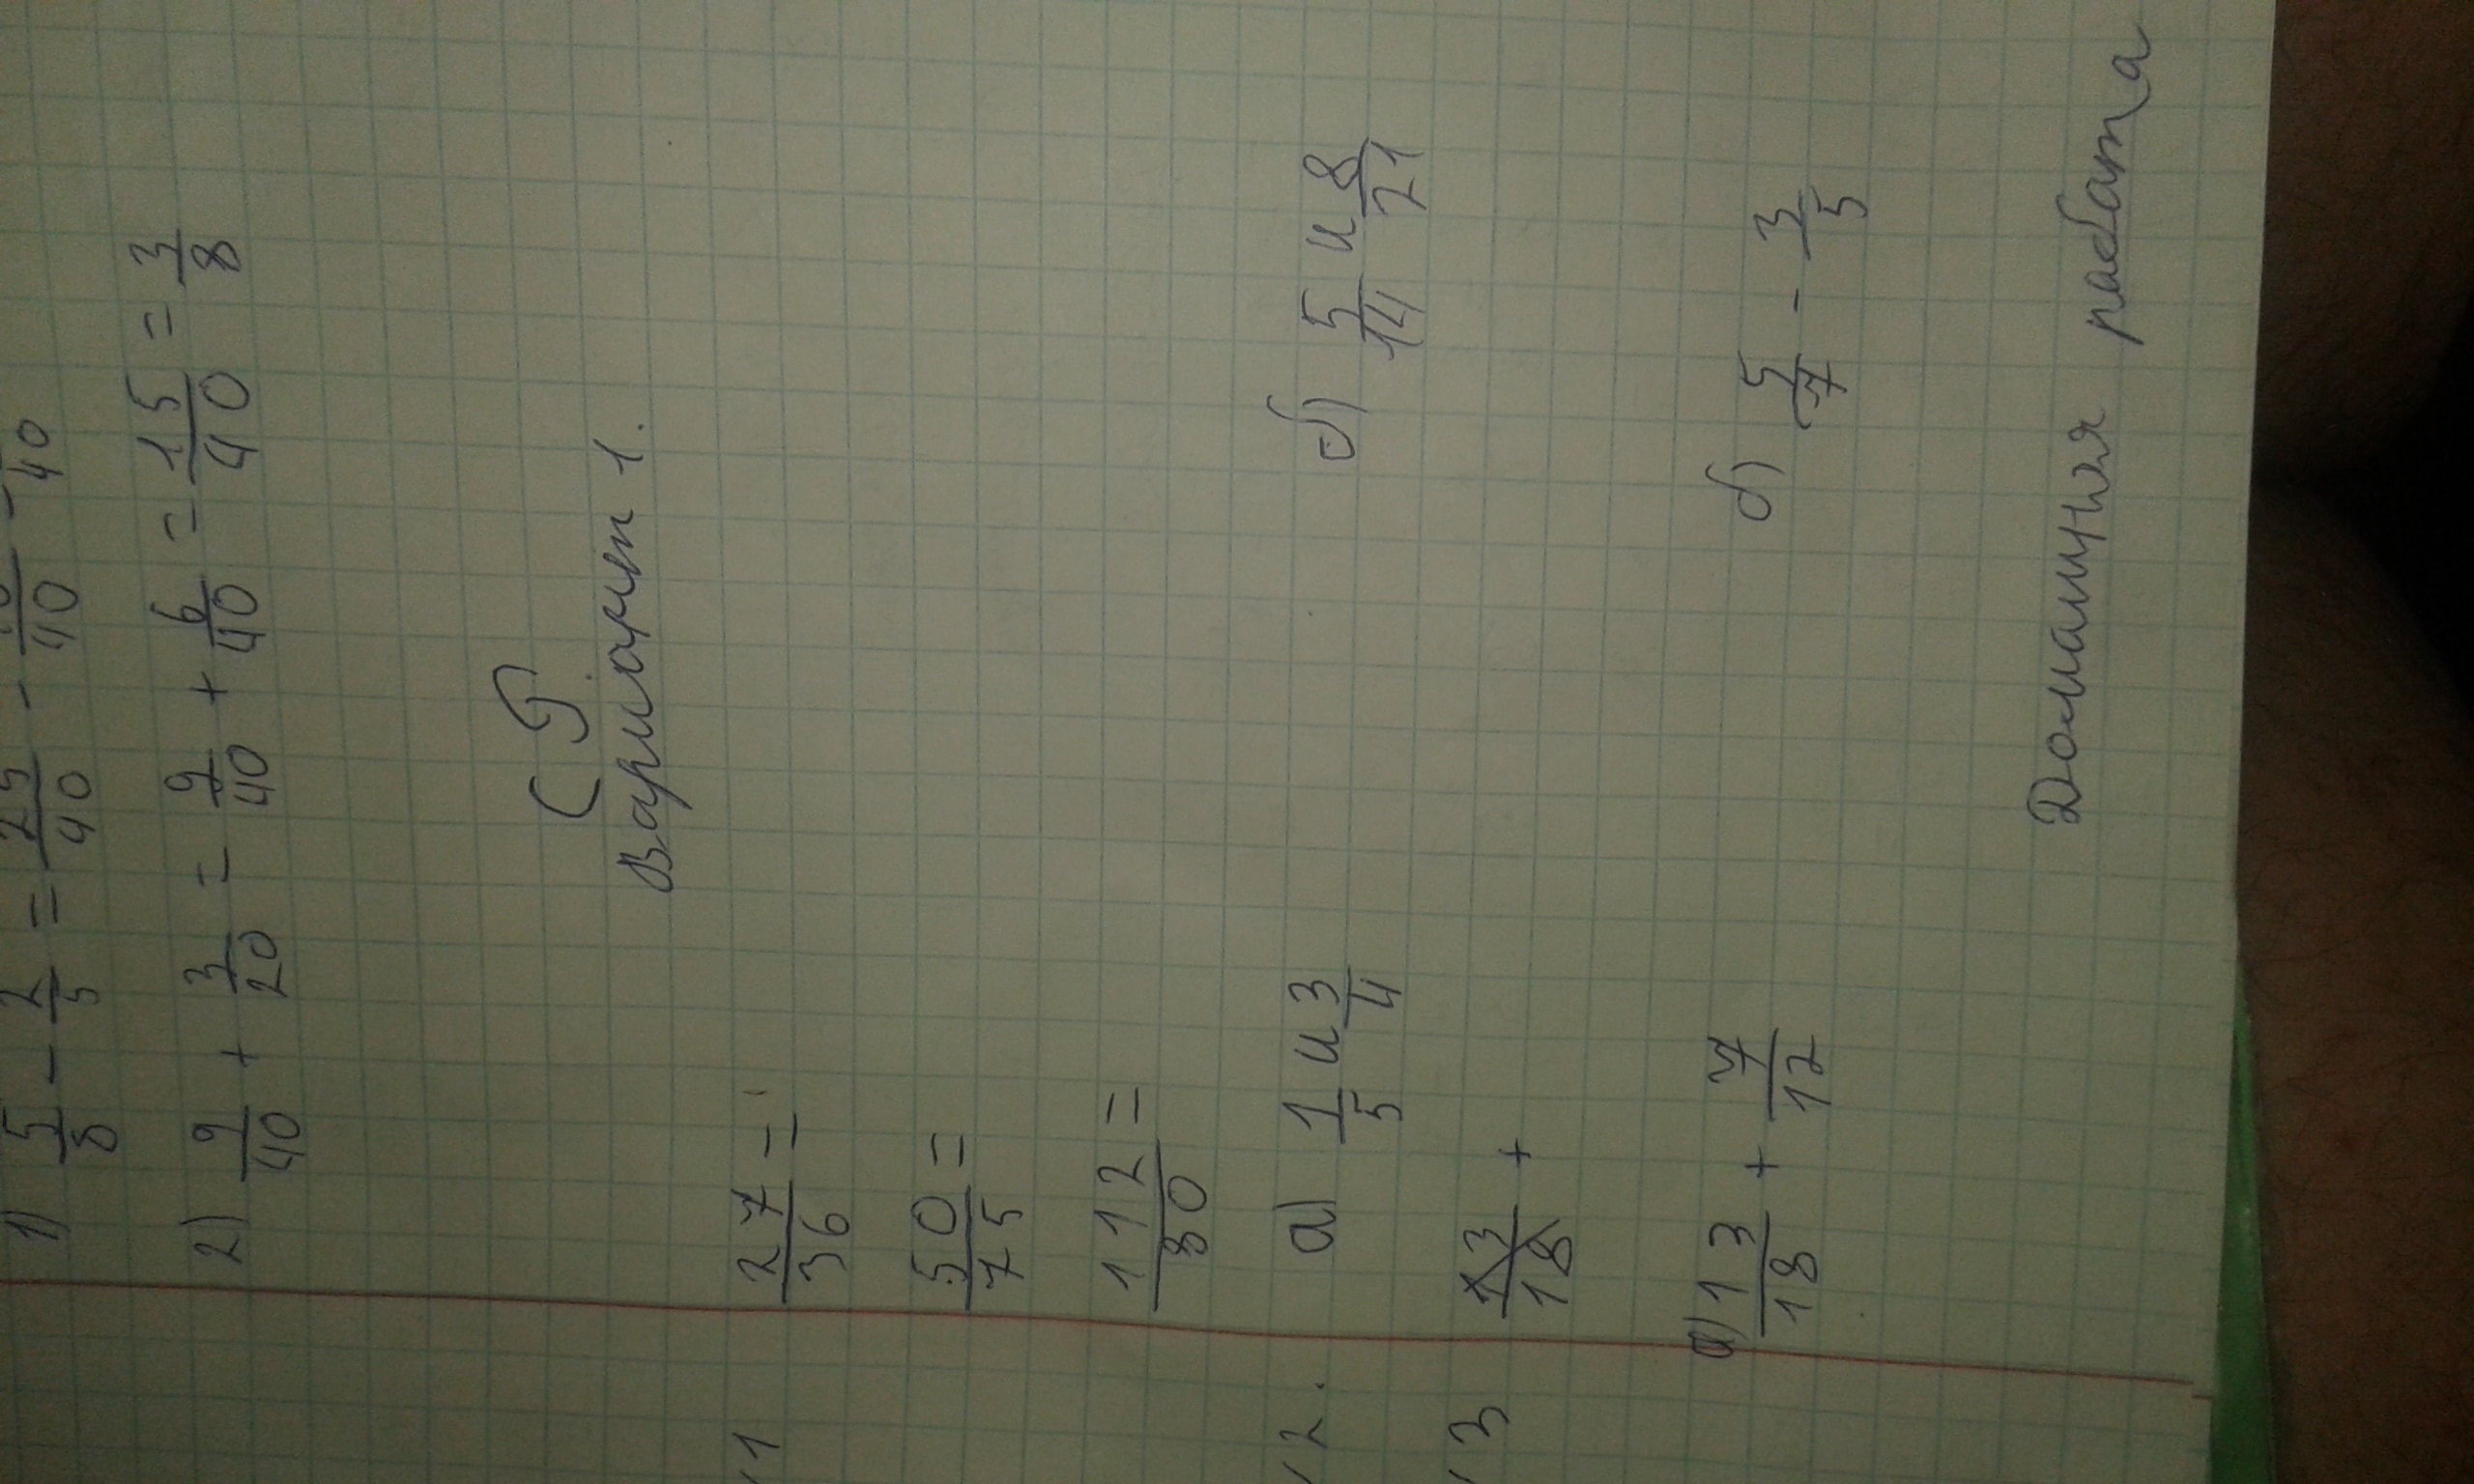 1) 5/8 - 2/5 = 25/40 - /40 = /40
2) 9/40 + 3/20 = 9/40 + 6/40 = 15/40 = 3/8
СР
Вариант 1.
1 27/36 =
50/75 =
112/80 =
2. а) 1/5 и 3/4 б) 5/14 и 8/21
3 13/18 +
а) 13/18 + 7/12 б) 5/7 - 3/5
Домашняя работа